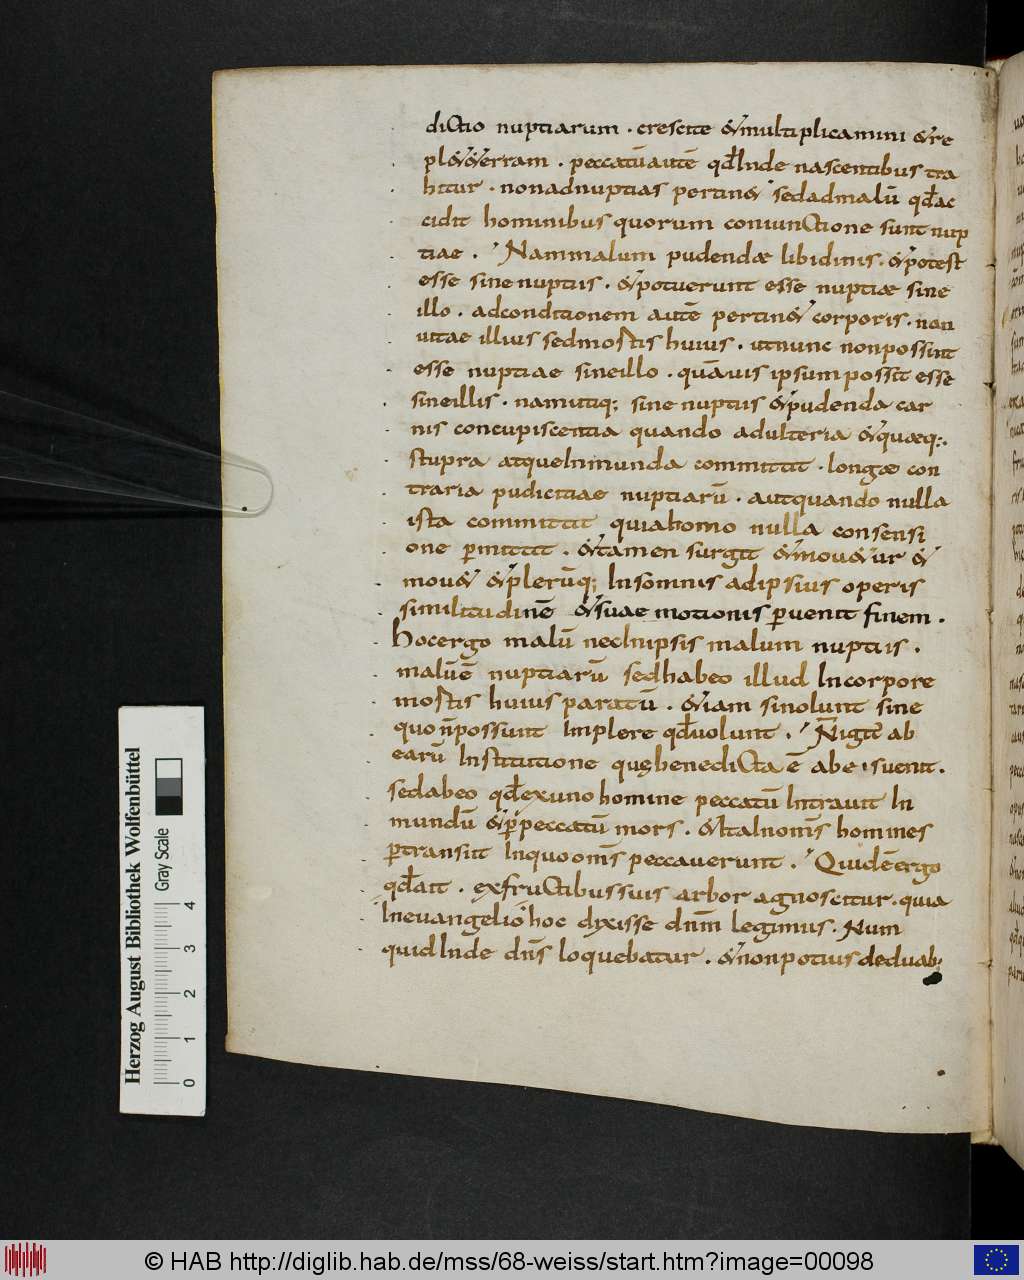 dictio nuptiarum · crescite &multiplicamini &re
pl&&erram · peccatū autē qđ Inde nascentibus tra
hitur · nonadnuptias pertin& sedadmalū qđ ac
cidit hominibus quorum coniunctione sunt nup
tiae · Nammalum pudendae libidinis · &potest
esse sine nuptiis · &potuerunt esse nuptiae sine
illo · adconditionem autē pertin& corporis · non
uitae illius sedmortis huius · utnunc nonpossint
esse nuptiae sineillo · quāuis ipsum possit esse
sineillis · namutiq; sine nuptiis &pudenda car
nis concupiscentia quando adulteria &quaeq;
stupra atqueInmunda committit · longae con
traria pudicitiae nuptiarū · autquando nulla
ista committit quiahomo nulla consensi
one p̄mittit · &tamen surgit &mou&ur &
mou& &plerūq; Insomnis adipsius operis
similitudinē &suae motionis p̄uenit finem ·
hocergo malū necInipsis malum nuptiis ·
malūē nuptiarū sedhabeo illud Incorpore
mortis huius paratū · &iam sinolunt sine
quon̄possunt Implere qđuolunt · N̄igit̄ ab
earū Institutione quębenedicta ē abe isuenit ·
sedabeo qđexuno homine peccatū Intrauit In
mundū &p̄peccatū mors · &ItaInom̄s homines
p̄transiit Inquoom̄s peccauerunt · Quidēergo
qđait · exfructibussuis arbor agnoscitur · quia
Ineuangelio hoc dixisse dn̄m legimus · Num
quidInde dn̄s loquebatur · &nonpotius deduab;
Herzog August Bibliothek Wolfenbüttel
Gray Scale
0 1 2 3 4
© HAB http://diglib.hab.de/mss/68-weiss/start.htm?image=00098